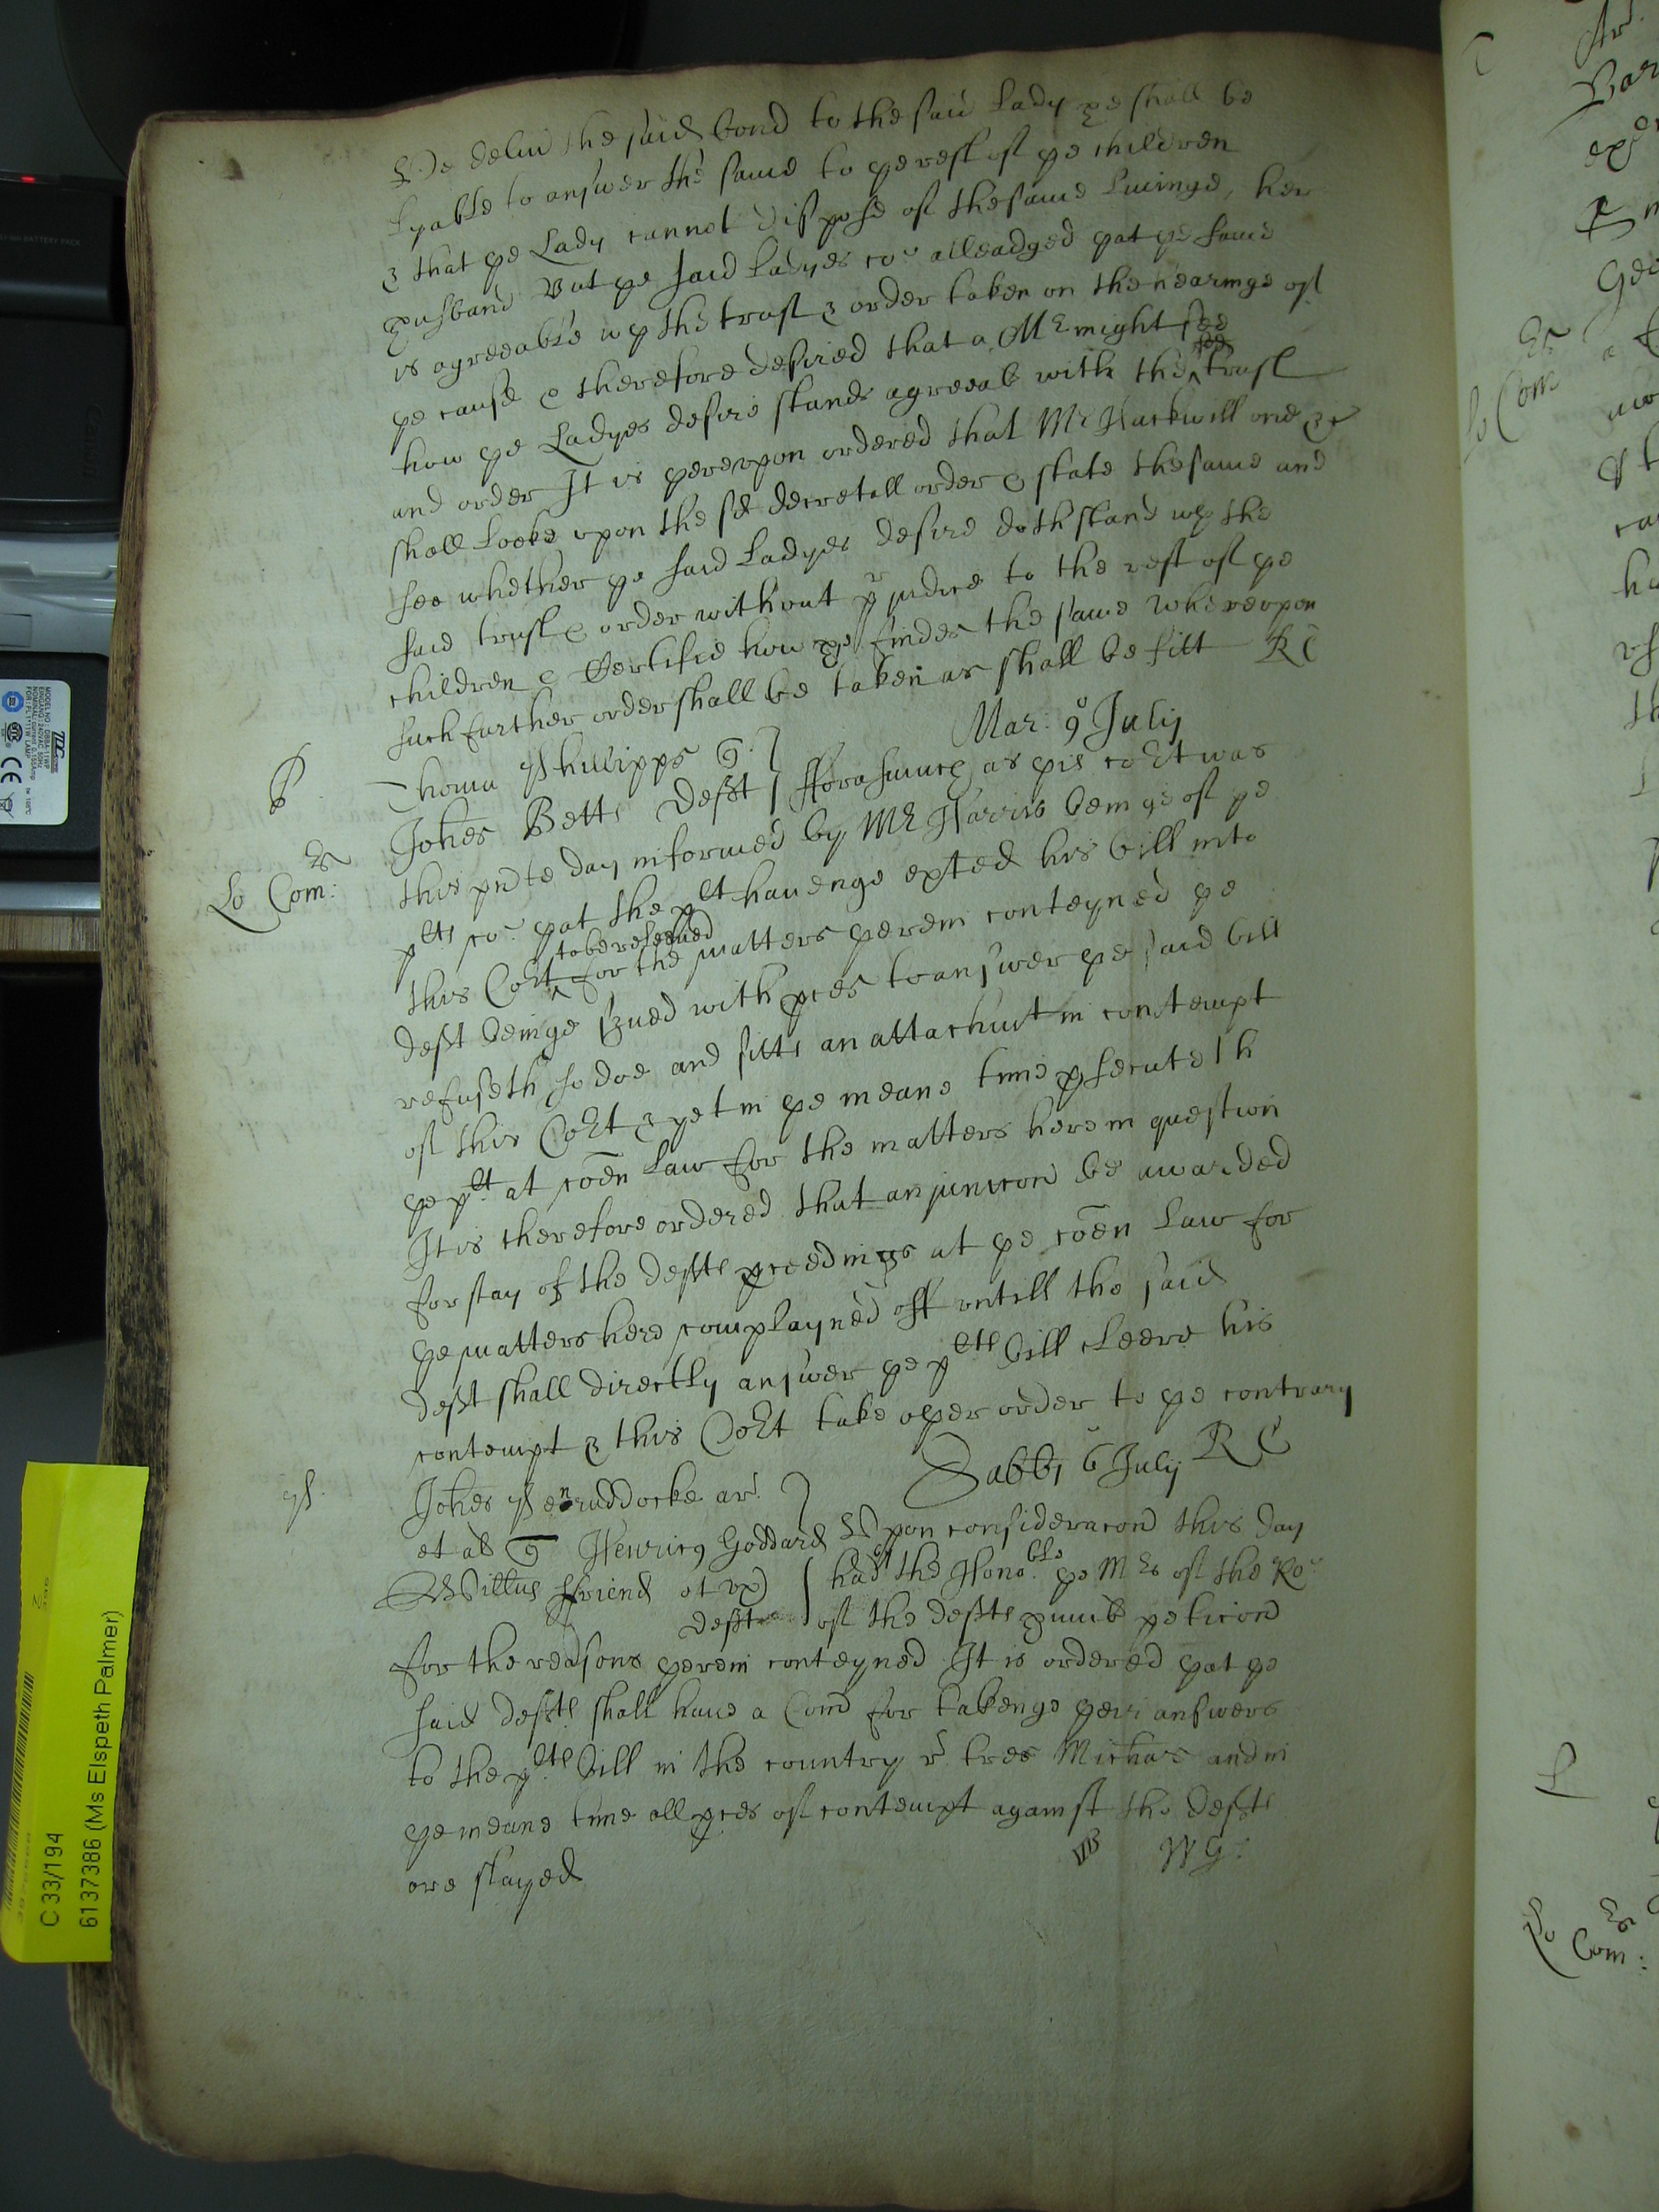 he deliū the said bond to the said Lady he shall be
lyable to answer the same to ye rest of ye children
& that ye Lady cannot dispose of the same liuinge, her
husband But ye said Ladyes co: alleadged yat ye same
is agreeable wth the trust & order taken on the hearinge of
ye cause & therefore desired that a Mr might see
how ye Ladyes desire stands agreeab with the trust
and order It is yerevpon ordered that Mr Hackwill one &c
shall looke vpon the sd decretall order & state the same and
see whether ye said Ladyes desire doth stand wth the
said trust & order without pr judice to the rest of ye
children & Certifie how he findes the same Wherevpon
such further order shall be taken as shall be fitt RC
Mar: 9o July
P
Thoma Phillipps q
Johes Betts Deft fforasmuch as yis coRt was
Lo Com: Rr
this pnte day informed by Mr Harris beinge of ye
plts co: yat the plt hauenge exted his bill into
this CoRt to be releeued for the matters yerein conteyned ye
deft beinge serued with pces to answer ye said bill
refuseth so doe and sitts an attachmt in contempt
of this CoRt & yet in ye meane time psecuteth
ye plt at coēn law for the matters here in question
It is therefore ordered that an juncion be awarded
for stay of the defts pceedings at ye coēn law for
ye matters here complayned off vntill the said
deft shall directly answer ye plts bill cleere his
contempt & this CoRt take oyer order to ye contrary
Sabbi 6 July RC
P
Johes Penruddocke ar
et al q Henricq Goddard Vpon consideracon this day
Willus ffriend et vx had of the Honoble ye Mr of the Ro:
Deft of the defts humb peticon
for the reasons yerein conteyned It is ordered yat ye
said defts shall haue a Com for takenge yeir answers
to the plts bill in the country r tres Michas and in
ye meane time all pces of contempt against the defts
are stayed WG:
C 33/194
6137386 (Ms Elspeth Palmer)